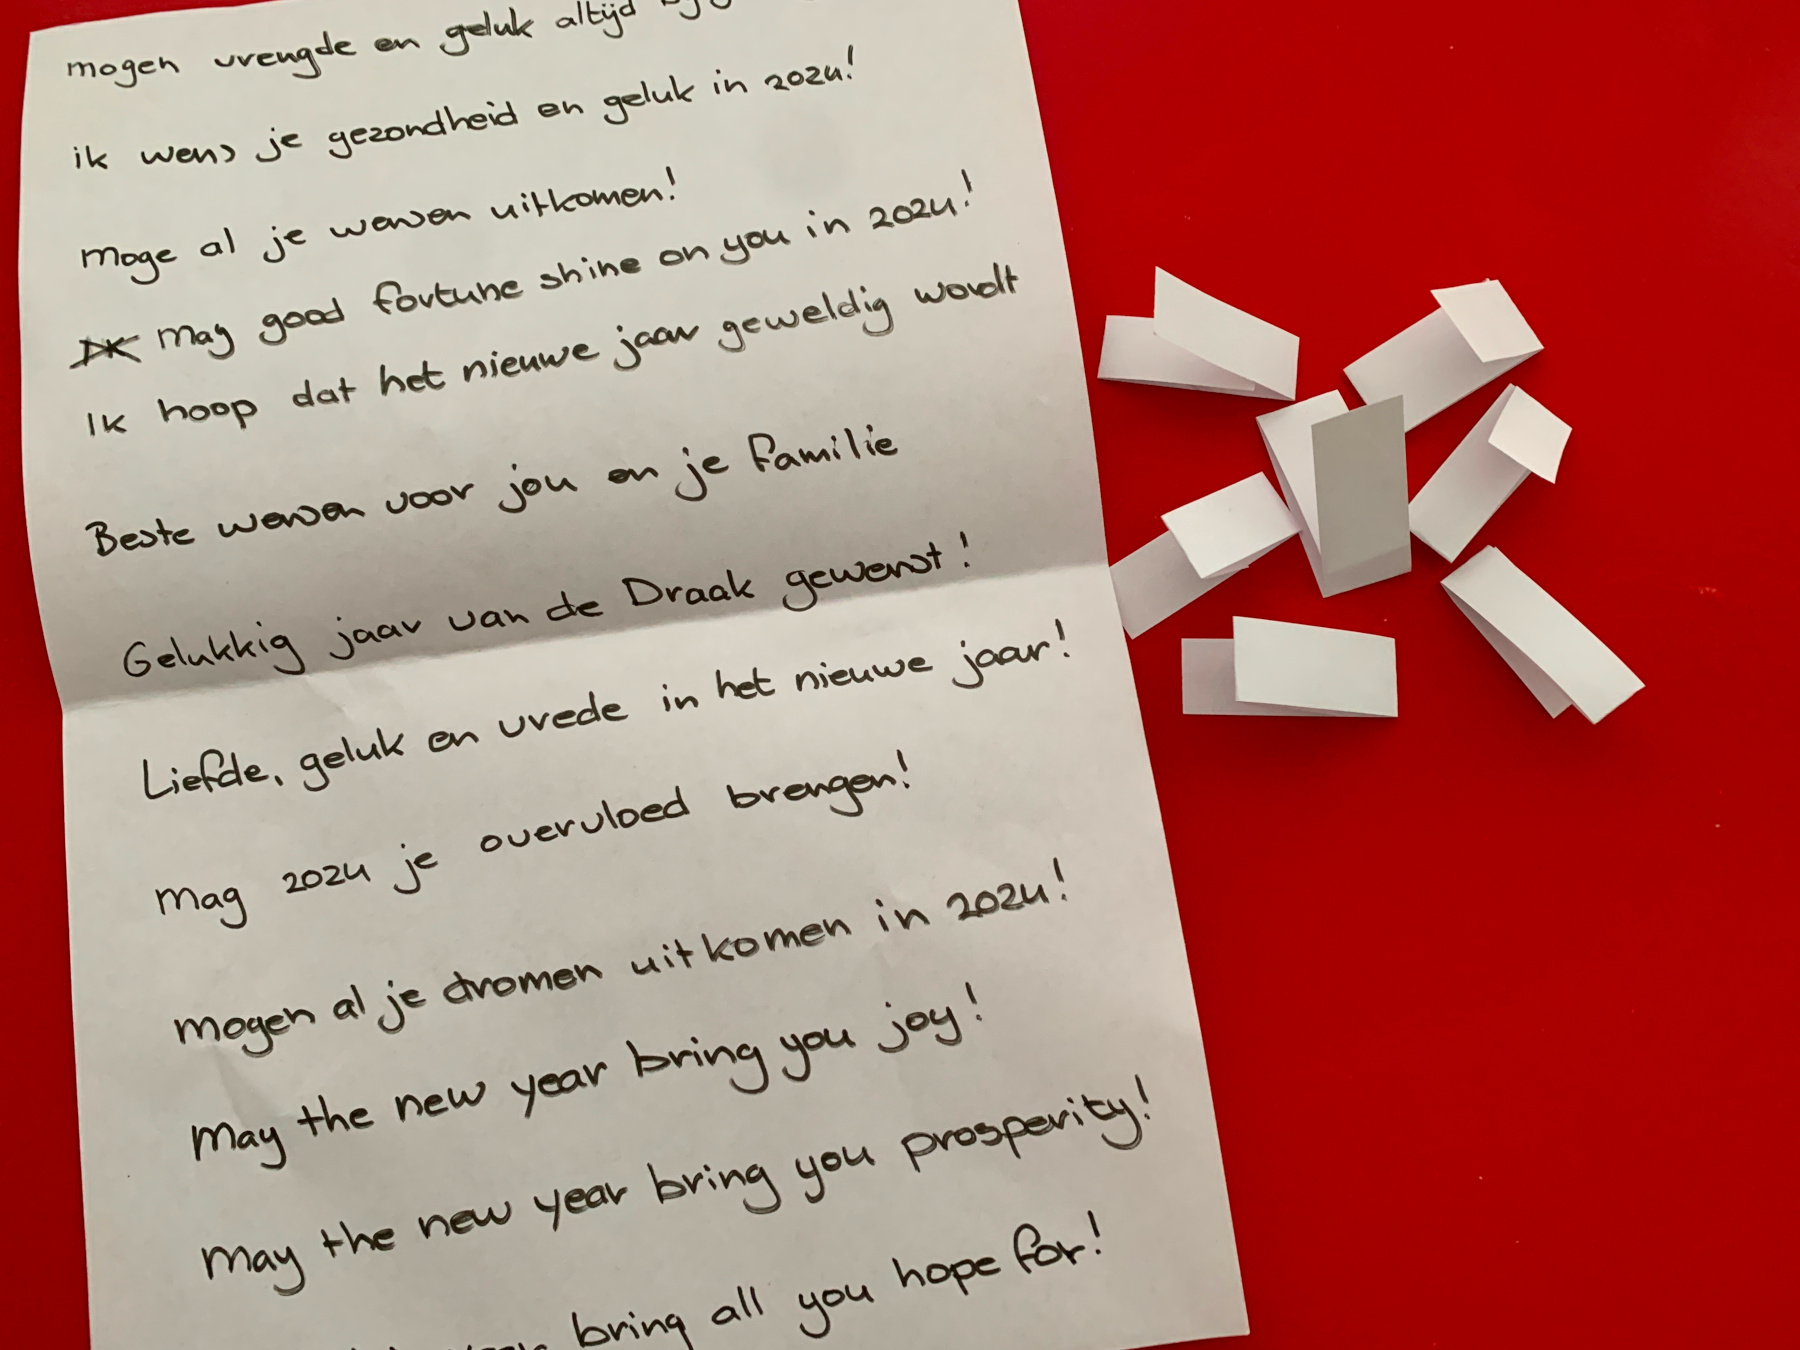 mogen vreugde en geluk altijd
ik wens je gezondheid en geluk in 2024!
Moge al je wensen uitkomen!
May good fortune shine on you in 2024!
Ik hoop dat het nieuwe jaar geweldig wordt
Beste wensen voor jou en je familie
Gelukkig jaar van de Draak gewenst!
Liefde, geluk en vrede in het nieuwe jaar!
Mag 2024 je overvloed brengen!
Mogen al je dromen uitkomen in 2024!
May the new year bring you joy!
May the new year bring you prosperity!
bring all you hope for!